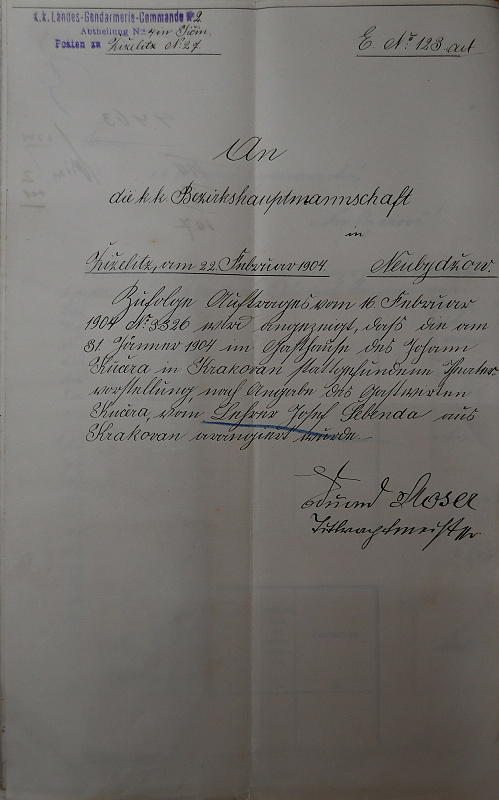 k.k. Landes-Gendarmerie-Commando Nº 2.
Abtheilung Nº 4 in Jičin,
Posten zu Žiželitz Nº 27.
E. Nº 123
An
die k. k. Bezirkshauptmannschaft
in
Žiželitz, am 22. Februar 1904. Neubydžow.
Zufolge Auftrages vom 16. Februar
1904 Nº 3326 wird angezeigt, dass die am
31. Jänner 1904 im Gasthause des Johann
Kučera in Krakovan stattgefundene Theater-
vorstellung nach Angabe des Gastwirten
Kučera, vom Lehrer Josef Lebenda aus
Krakovan arangiert wurde.
Eduard Moser
Titl. Wachtmeister